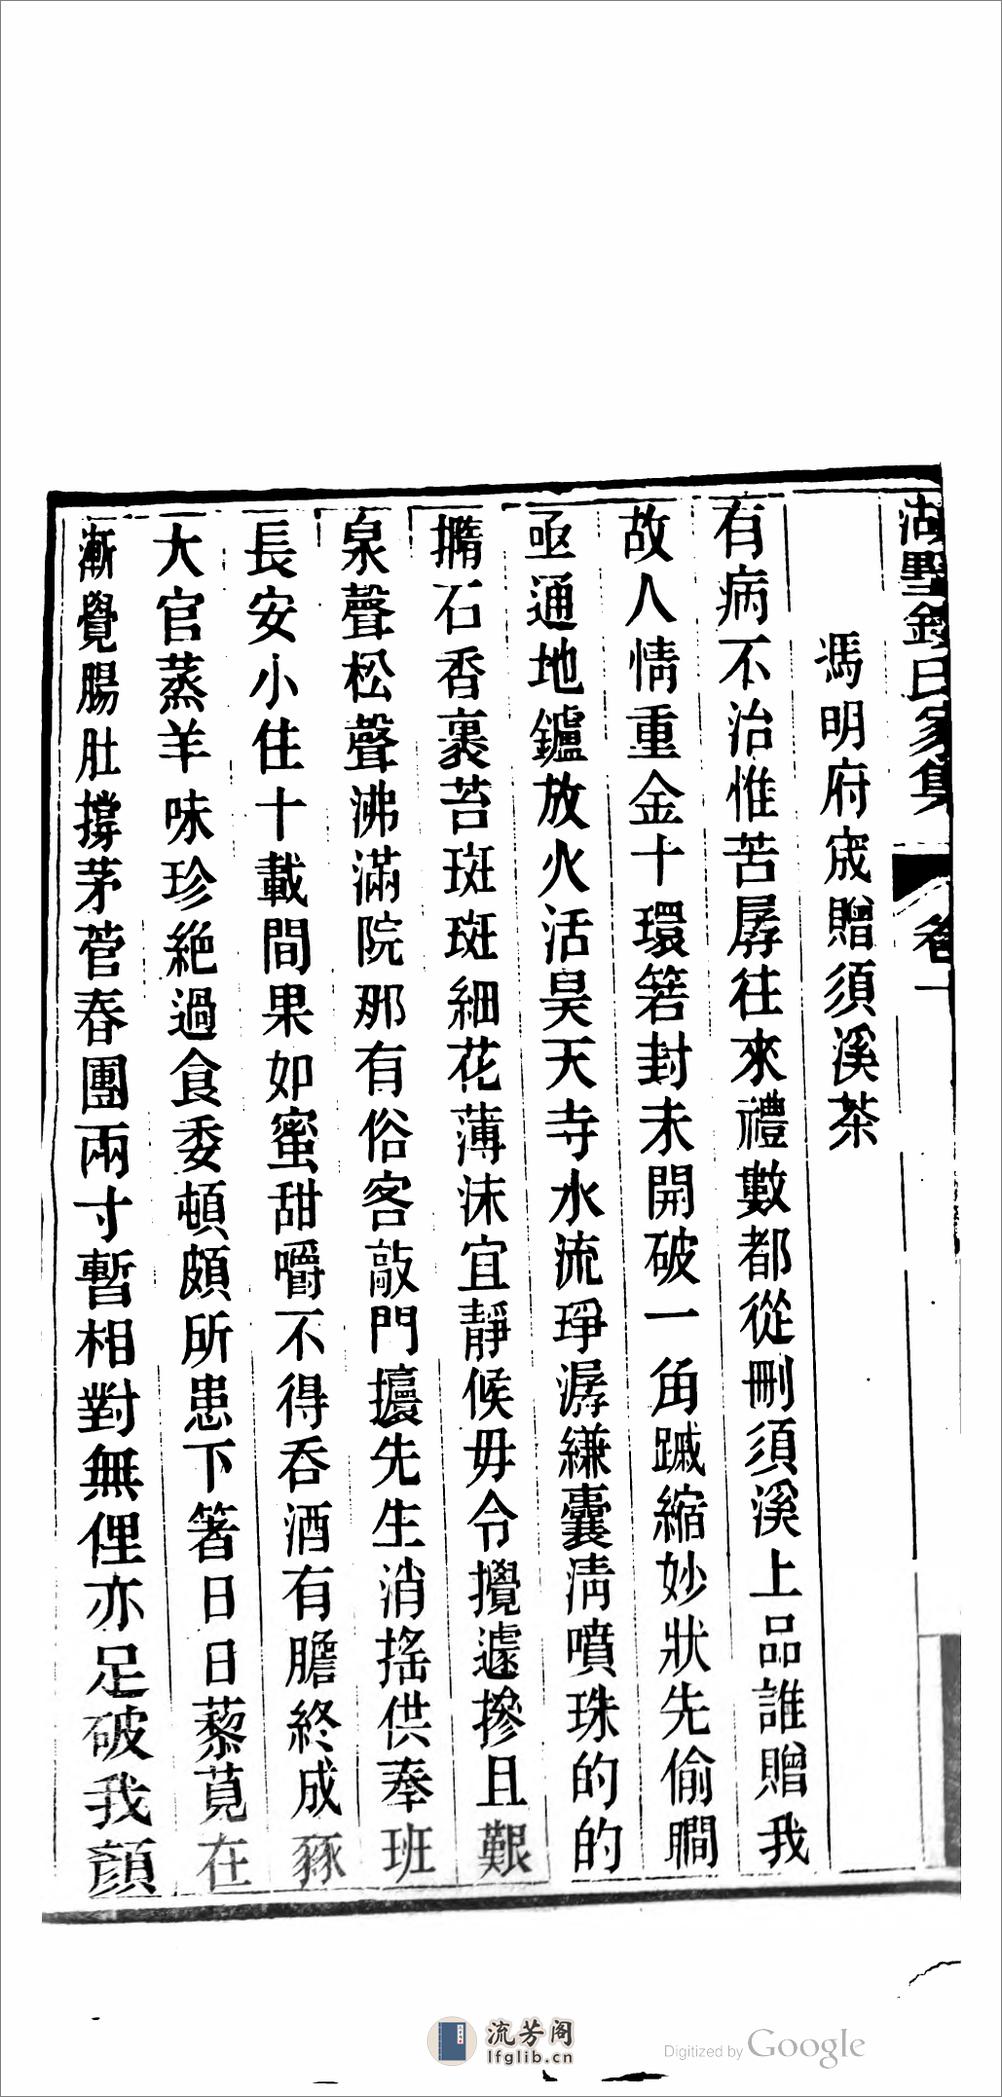 湖墅錢氏家集 卷一
馮明府宬贈須溪茶
有病不治惟苦孱往來禮數都從刪須溪上品誰贈我
故人情重金十環箬封未開破一角蹙縮妙狀先偷瞷
亟通地鑪放火活昊天寺水流琤潺縑囊淸噴珠的的
撱石香裏苔斑斑細花薄沫宜靜候毋令攪遽摻且艱
泉聲松聲沸滿院那有俗客敲門擐先生消搖供奉班
長安小住十載間果如蜜甜嚼不得呑酒有膽終成豩
大官蒸羊味珍絶過食委頓頗所患下箸日日藜莧在
漸覺腸肚撐茅菅春團兩寸暫相對無俚亦足破我顏
流芳阁
lfglib.cn
Digitized by Google